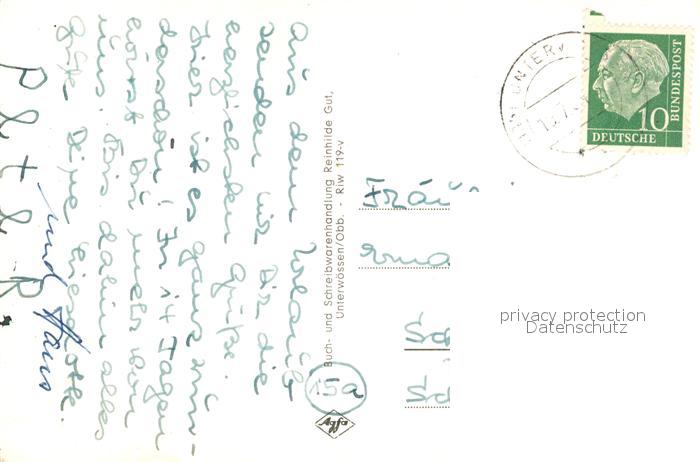 aus dem Urlaub
senden wir Dir die
herzlichsten Grüße.
Hier ist es ganz wun-
derschön! In 14 Tagen
hörst Du mehr von
uns. Bis dahin alles
Gute Deine
und Hans
Buch- und Schreibwarenhandlung Reinhilde Gut,
Unterwössen/Obb. - Riw 119-v
Agfa
15a
UNTER
10
DEUTSCHE
BUNDESPOST
Fräu
Erna
privacy protection
Datenschutz